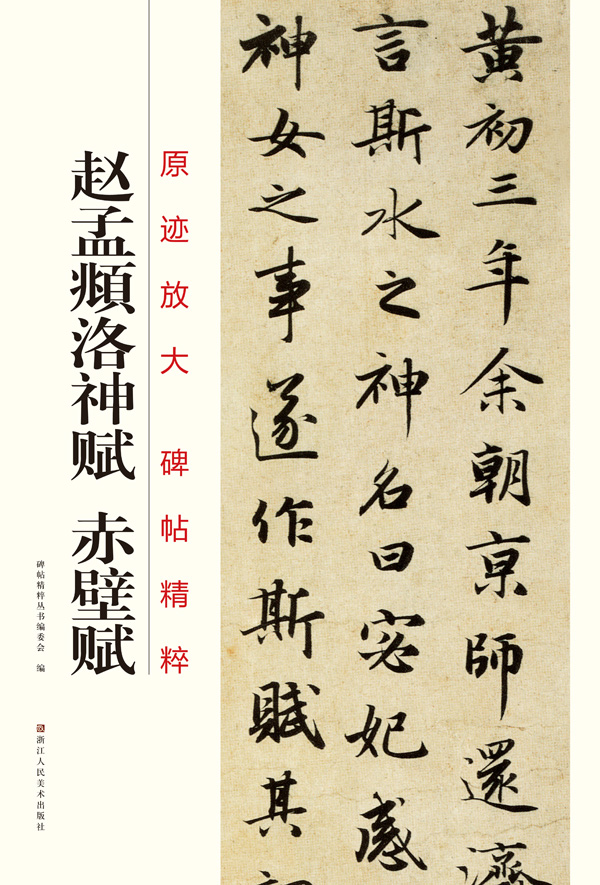 黄初三年余朝亰師還濟
言斯水之神名曰宓妃感
神女之事遂作斯賦其
原迹放大 碑帖精粹
赵孟頫洛神赋 赤壁赋
碑帖精粹丛书编委会 编
浙江人民美术出版社